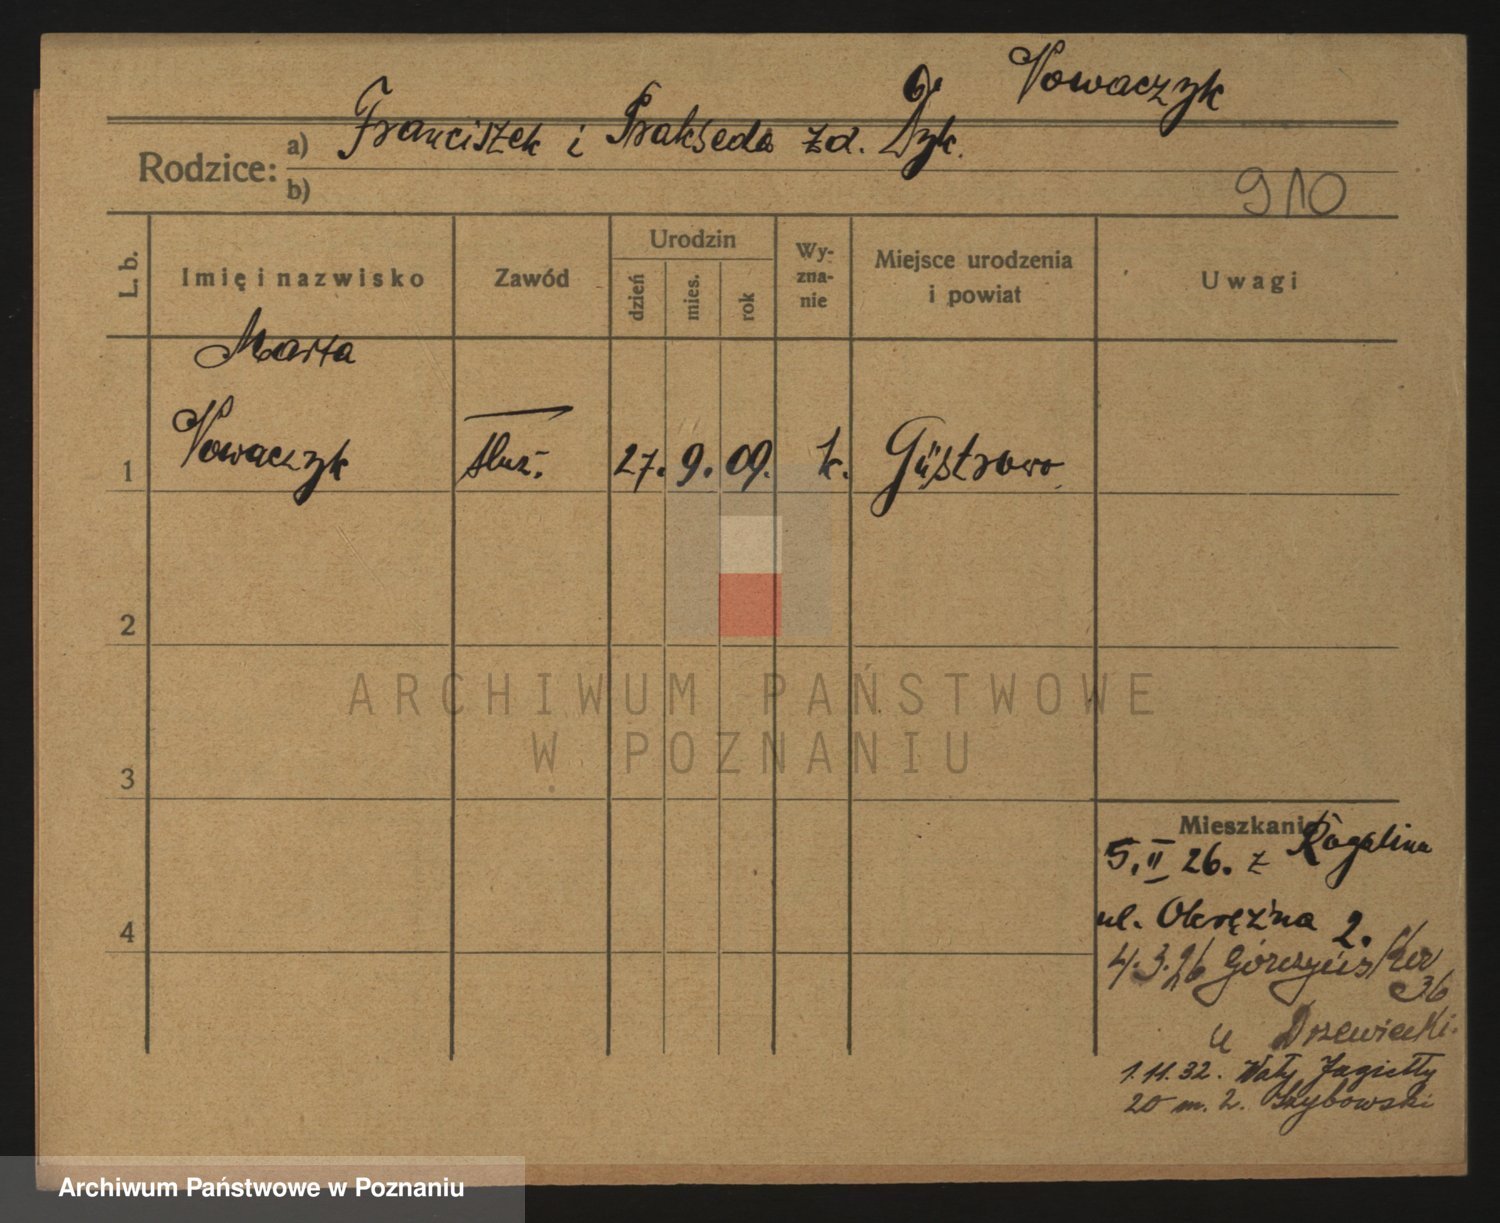 Nowaczyk
Rodzice: a) Franciszek i Prakseda zd. Dyk.
b)
910
L. b. Imię i nazwisko Zawód Urodzin dzień mies. rok Wy-zna-nie Miejsce urodzenia i powiat Uwagi
Marta
1 Nowaczyk służ. 27. 9. 09. k. Güstrowo
2
ARCHIWUM PAŃSTWOWE
W POZNANIU
3
Mieszkanie
5. II 26. z Rogalina
ul. Okrężna 2.
4
4.3.26
36
u Drzewiecki.
1.11.32. Wały Jagiełły
20 m. 2.
Archiwum Państwowe w Poznaniu